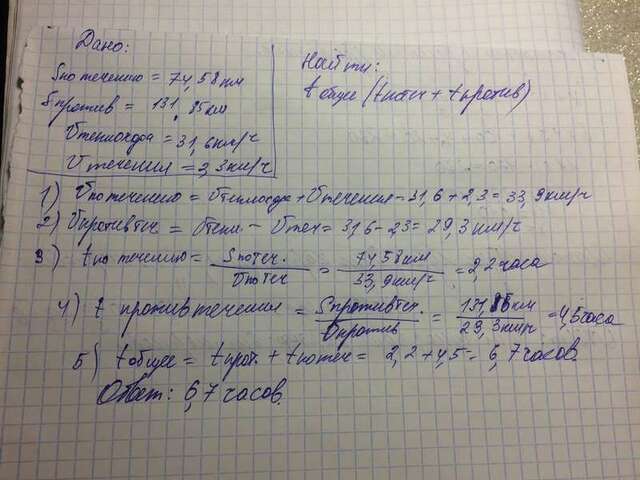 Дано:
Sпо течению = 74,58 км
Sпротив = 131,85 км
Vтеплохода = 31,6 км/ч
Vтечения = 2,3 км/ч
Найти:
t общее (tпотеч + tпротив)
1) Vпо течению = Vтеплохода + Vтечения = 31,6 + 2,3 = 33,9 км/ч
2) Vпротив теч = Vтепл. - Vтеч = 31,6 - 2,3 = 29,3 км/ч
3) t по течению = Sпотеч. / Vпотеч = 74,58 км / 33,9 км/ч = 2,2 часа
4) t против течения = Sпротив теч. / Vпротив = 131,85 км / 29,3 км/ч = 4,5 часа
5) t общее = t прот. + t потеч = 2,2 + 4,5 = 6,7 часов.
Ответ: 6,7 часов.